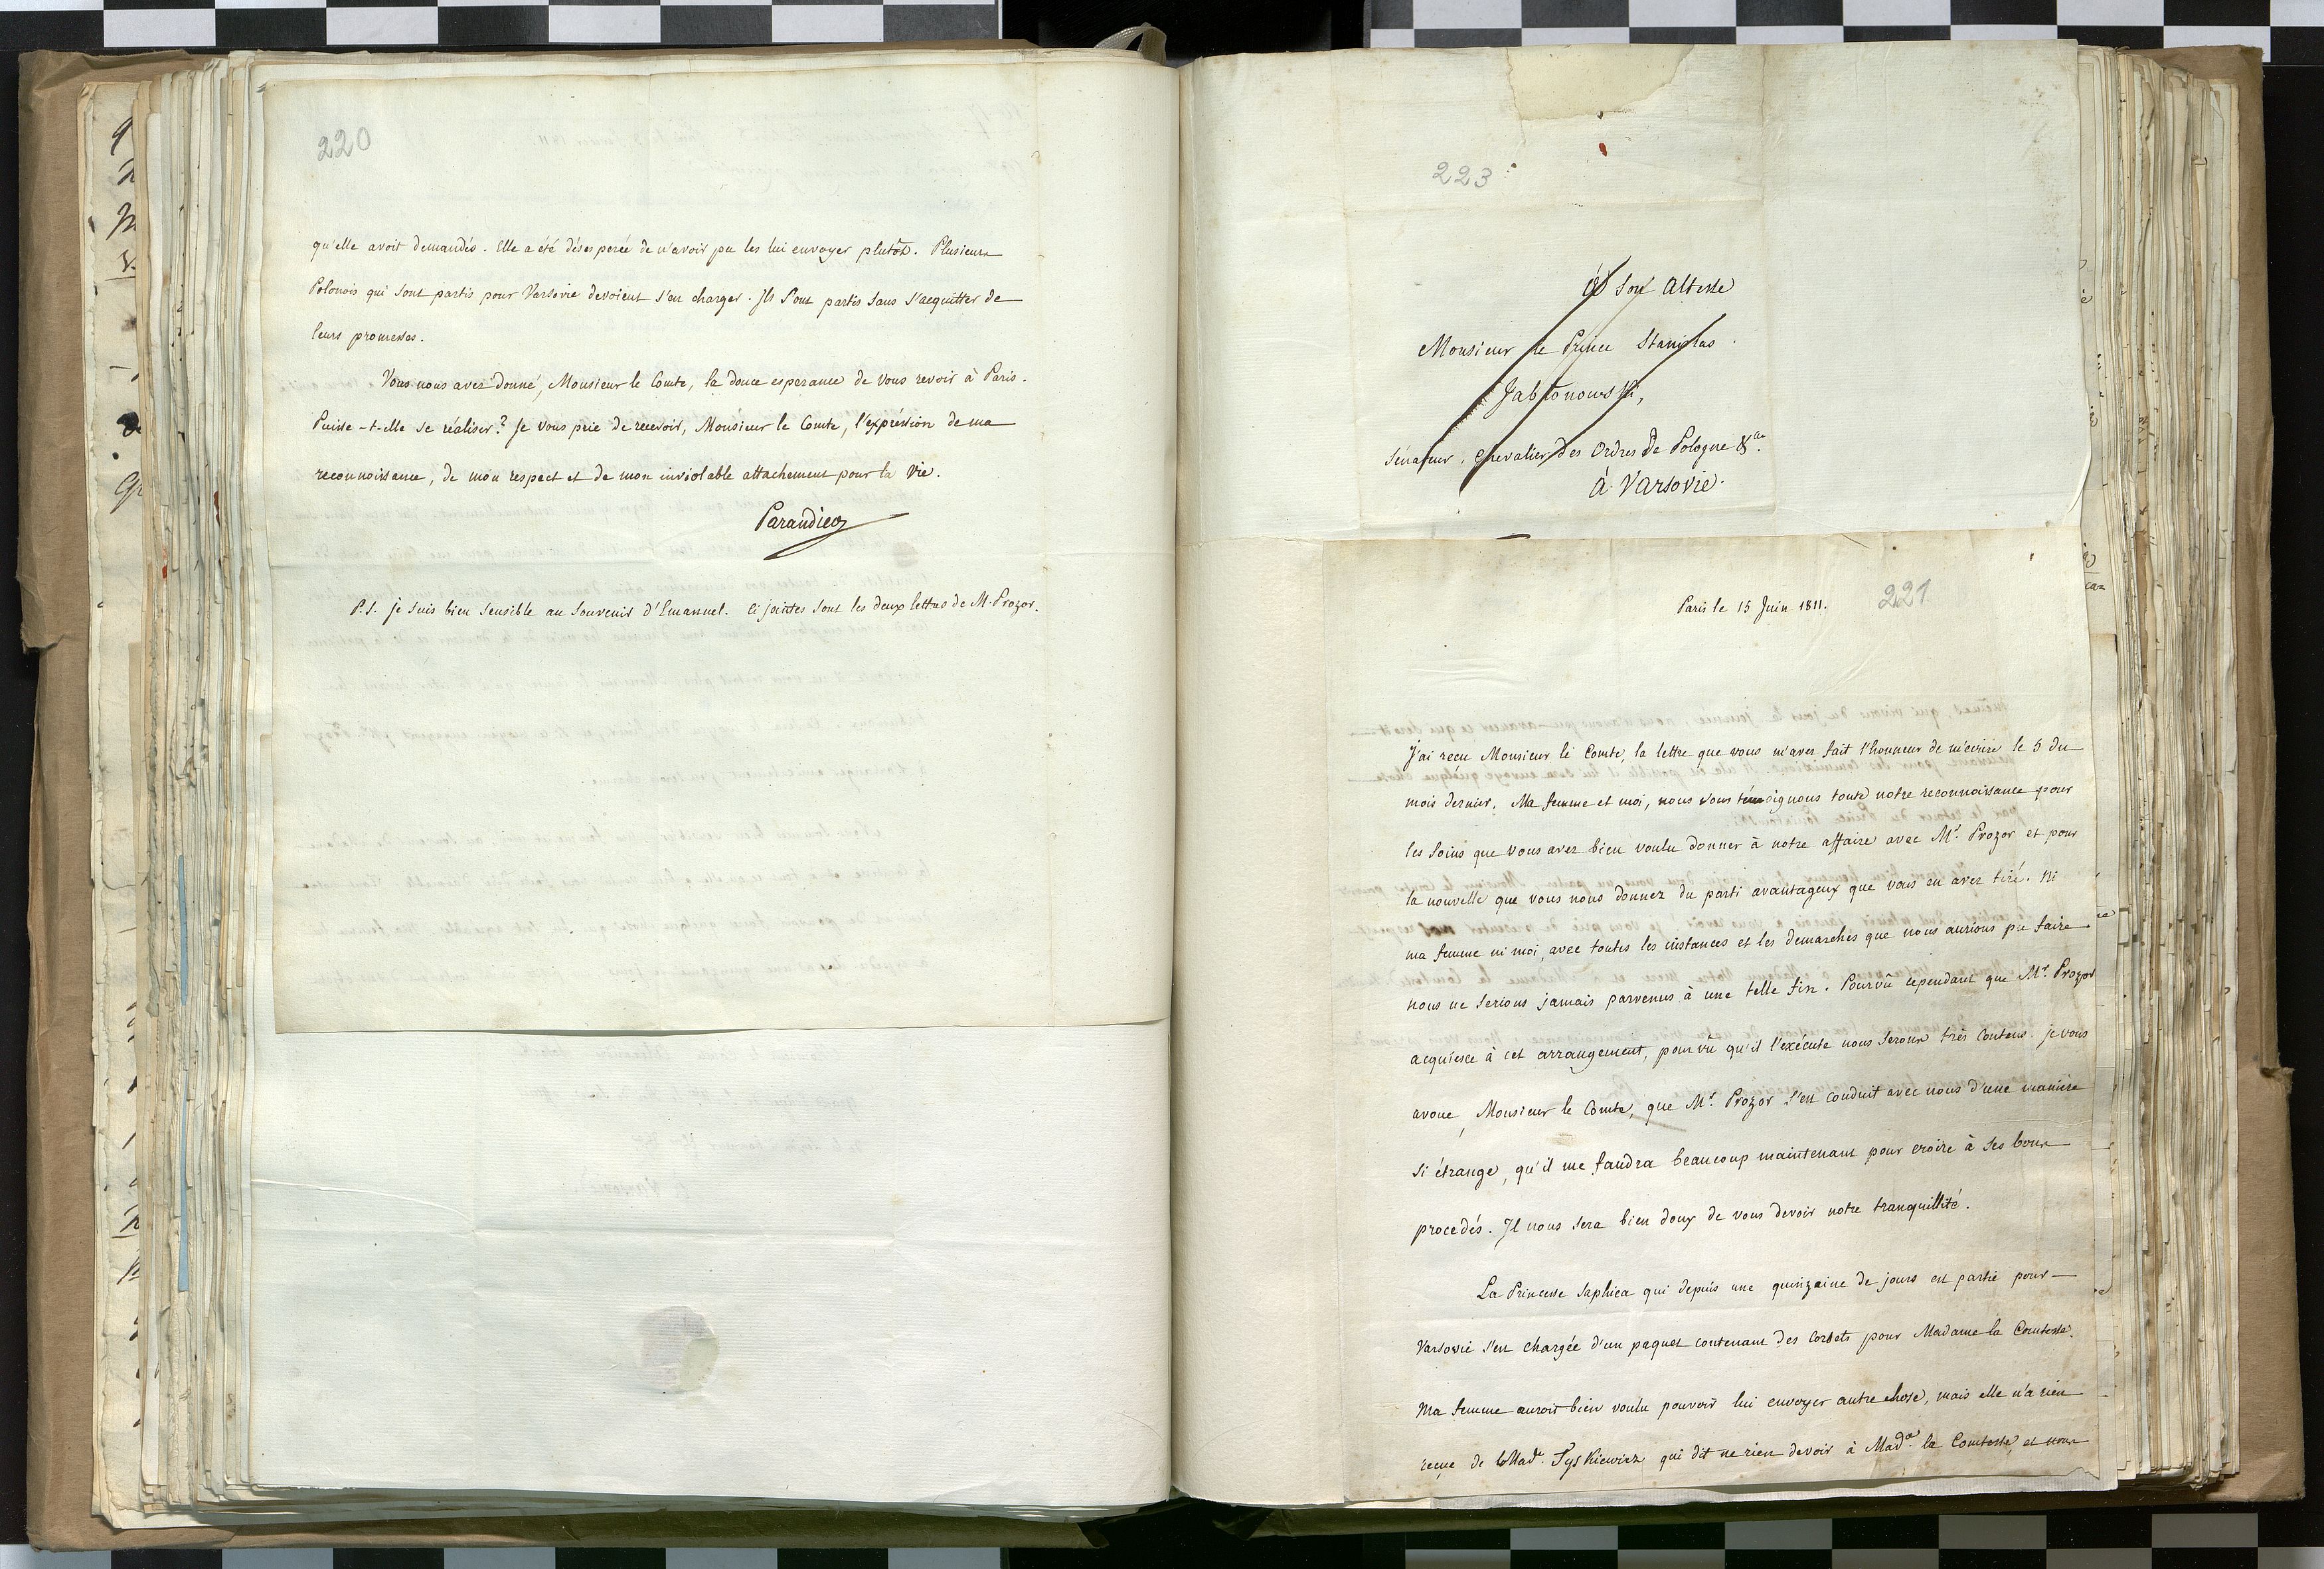 220
qu'elle avoit demandés. Elle a été désesperée de n'avoir pu les lui envoyer plutôt. Plusieurs
Polonois qui sont partis pour Varsovie devoient s'en charger. Ils sont partis sans s'acquitter de
leurs promesses.
Vous nous avez donné, Monsieur le Comte, la douce esperance de vous revoir à Paris.
Puisse-t-elle se réaliser? Je vous prie de recevoir, Monsieur le Comte, l'expréssion de ma
reconnoissance, de mon respect et de mon inviolable attachement pour la vie.
Parandier
P.S. je suis bien sensible au souvenir d'Emanuel. Ci jointes sont les deux lettres de M. Prozor.
223
à Son Altesse
Monsieur le Prince Stanislas
Jabłonowski,
Sénateur, Chevalier des Ordres de Pologne &ca.
à Varsovie.
221
Paris le 15 Juin 1811.
J'ai reçu Monsieur le Comte, la lettre que vous m'avez fait l'honneur de m'écrire le 5 du
mois dernier. Ma femme et moi, nous vous témoignons toute notre reconnoissance pour
les soins que vous avez bien voulu donner à notre affaire avec Mr. Prozor et pour
la nouvelle que vous nous donnez du parti avantageux que vous en avez tiré. Ni
ma femme ni moi, avec toutes les instances et les demarches que nous aurions pu faire
nous ne serions jamais parvenus à une telle fin. Pourvû cependant que Mr. Prozor
acquiesce à cet arrangement, pourvû qu'il l'exécute nous serons très contens. je vous
avoue, Monsieur le Comte, que Mr. Prozor s'est conduit avec nous d'une maniere
si étrange, qu'il me faudra beaucoup maintenant pour croire à ses bons
procedés. Il nous sera bien doux de vous devoir notre tranquillité.
La Princesse Saphiea qui depuis une quinzaine de jours est partie pour
Varsovie s'est chargée d'un paquet contenant des Corsets pour Madame la Comtesse.
Ma femme auroit bien voulu pouvoir lui envoyer autre chose, mais elle n'a rien
reçue de Made. Tyskiewicz qui dit ne rien devoir à Made. la Comtesse, et nous